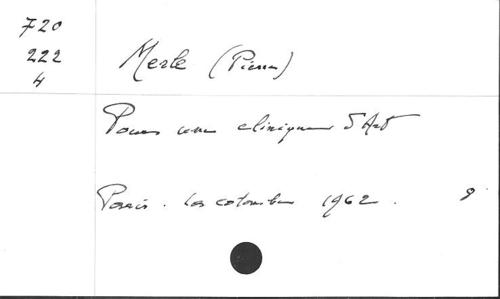 720
222
4
Merle (Pierre)
Pour une clinique d'Art
Paris. Les colombes 1962. 8°